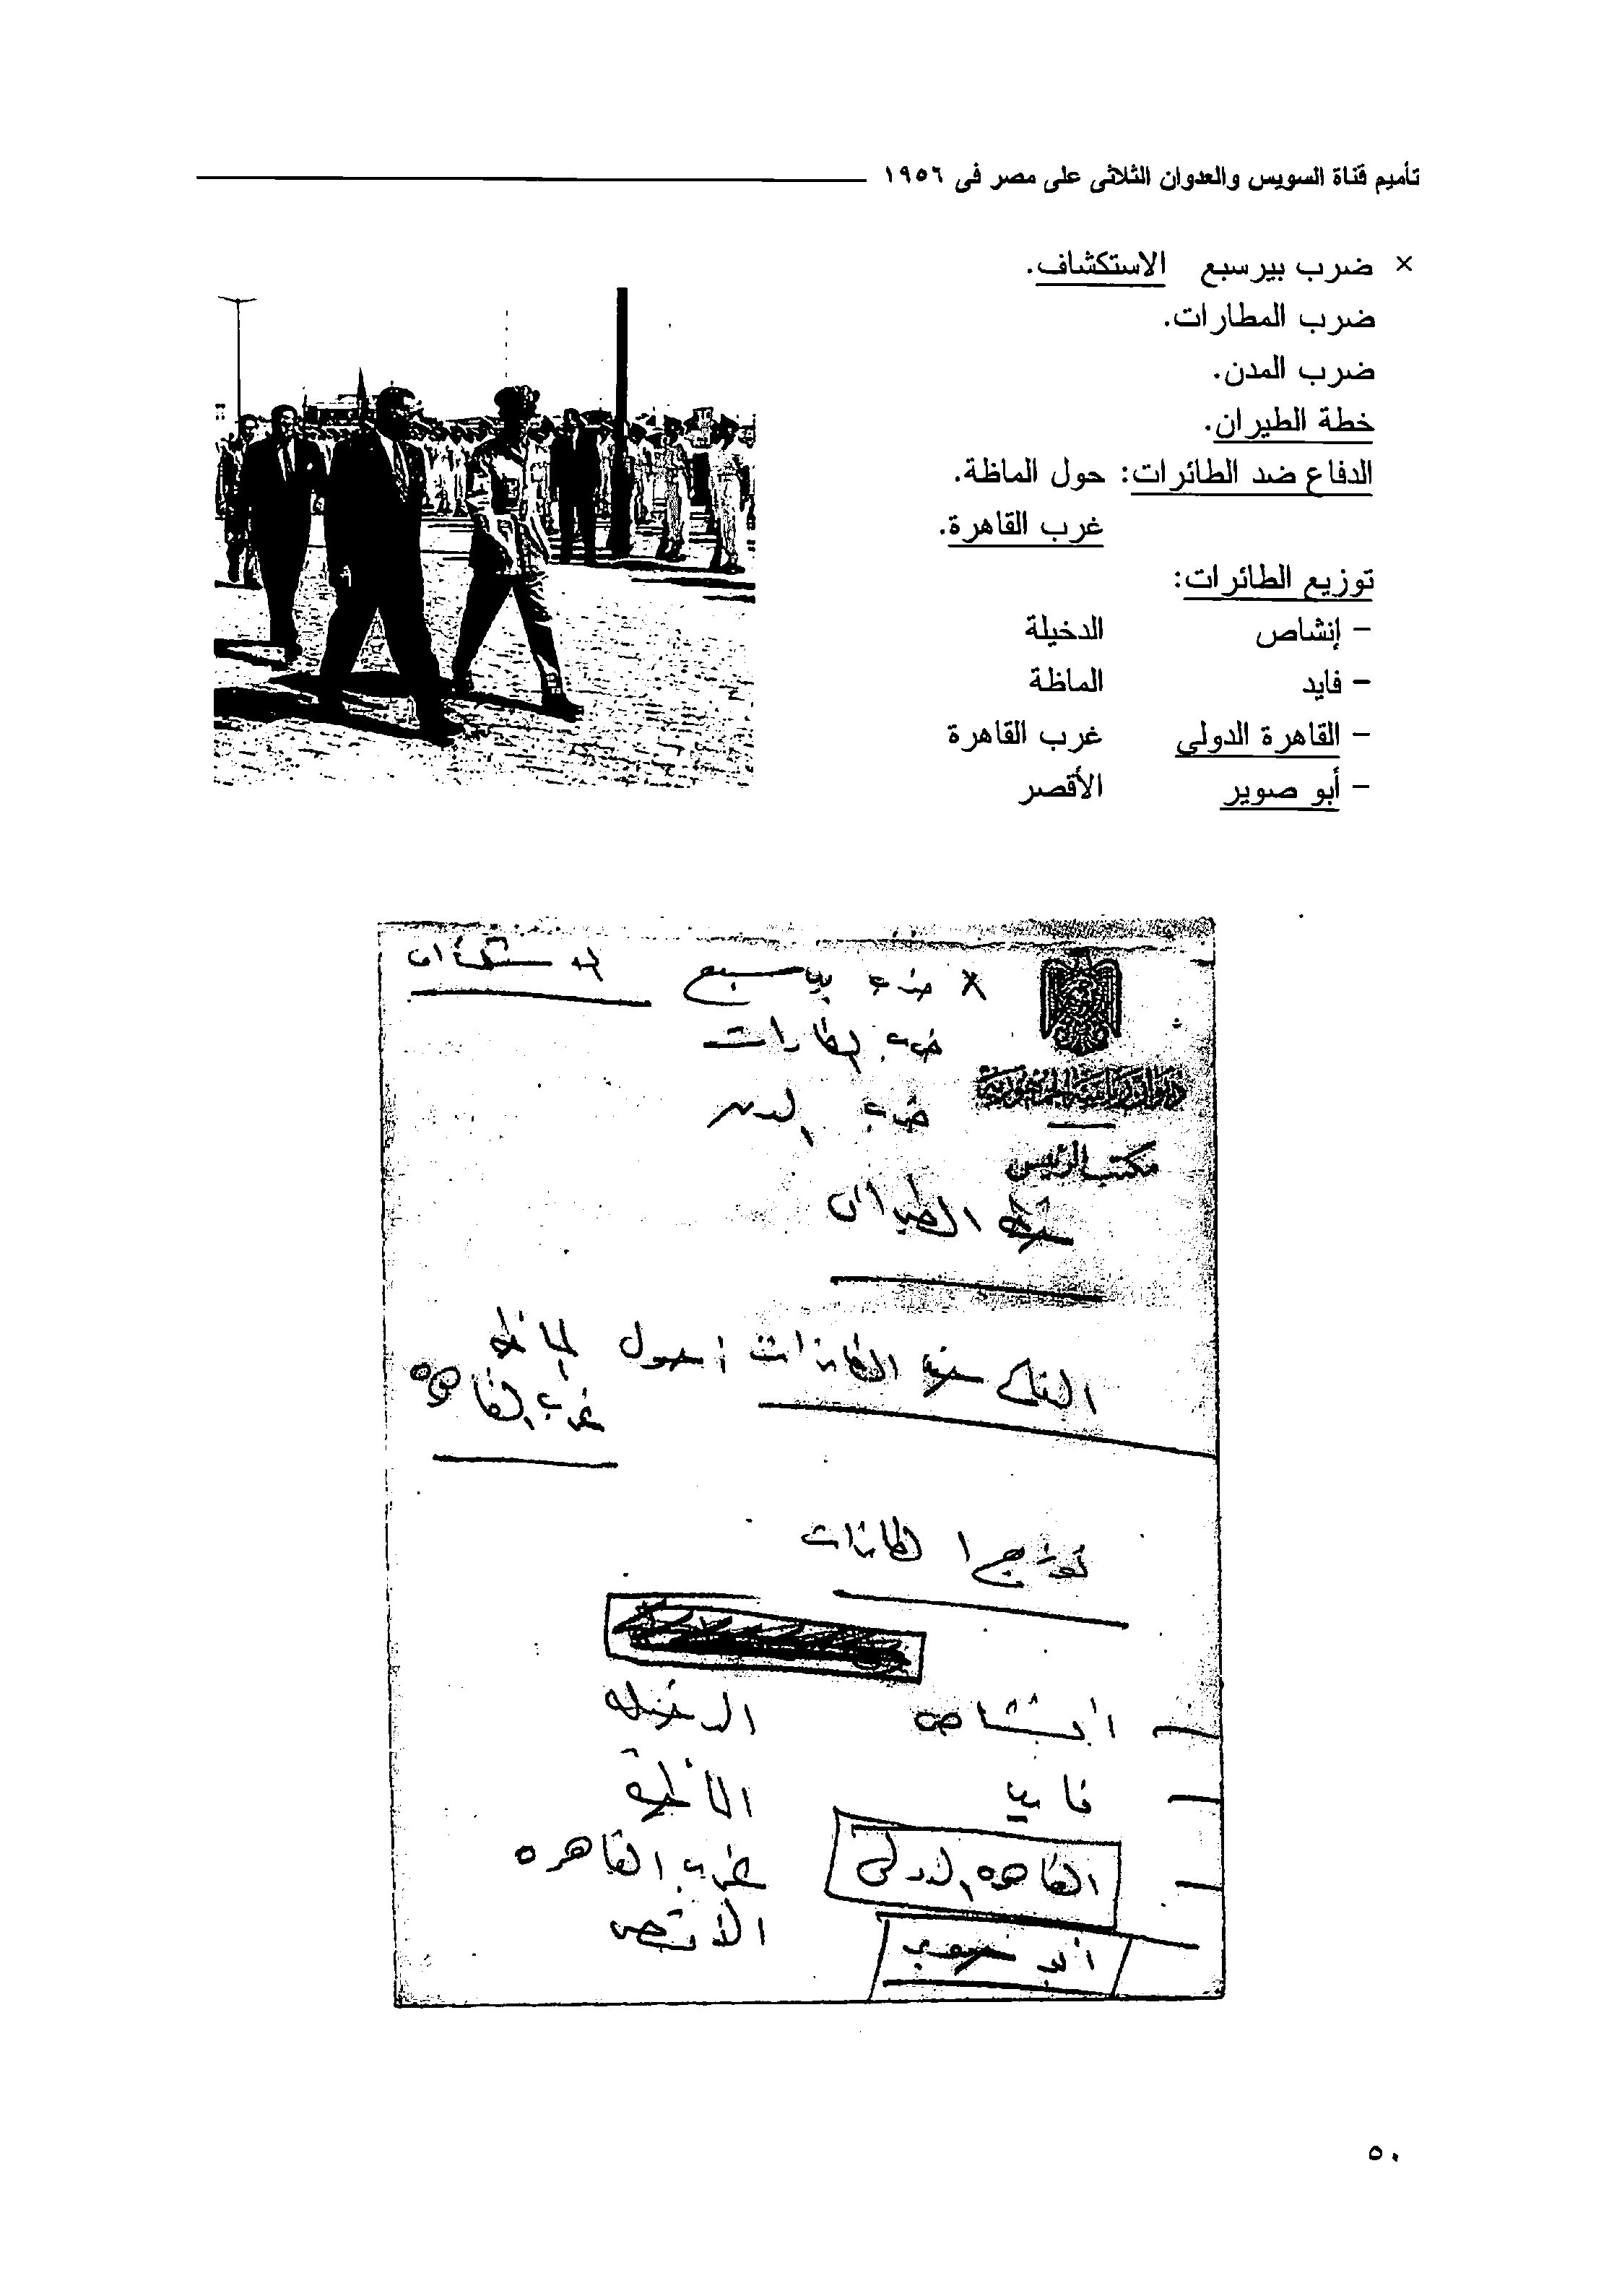 تأميم قناة السويس والعدوان الثلاثى على مصر فى ١٩٥٦
× ضرب بيرسبع الاستكشاف.
ضرب المطارات.
ضرب المدن.
خطة الطيران.
الدفاع ضد الطائرات: حول الماظة.
غرب القاهرة.
توزيع الطائرات:
– إنشاص الدخيلة
– فايد الماظة
– القاهرة الدولى غرب القاهرة
– أبو صوير الأقصر
ديوان رياسة الجمهورية
مكتب الرئيس
× ضرب بيرسبع الاستكشاف
ضرب المطارات
ضرب المدن
خطة الطيران
الدفاع ضد الطائرات : حول الماظه
غرب القاهره
توزيع الطائرات
— انشاص الدخيله
— فايد الماظة
— القاهره الدولى غرب القاهره
ابو صوير الاقصر
٥٠